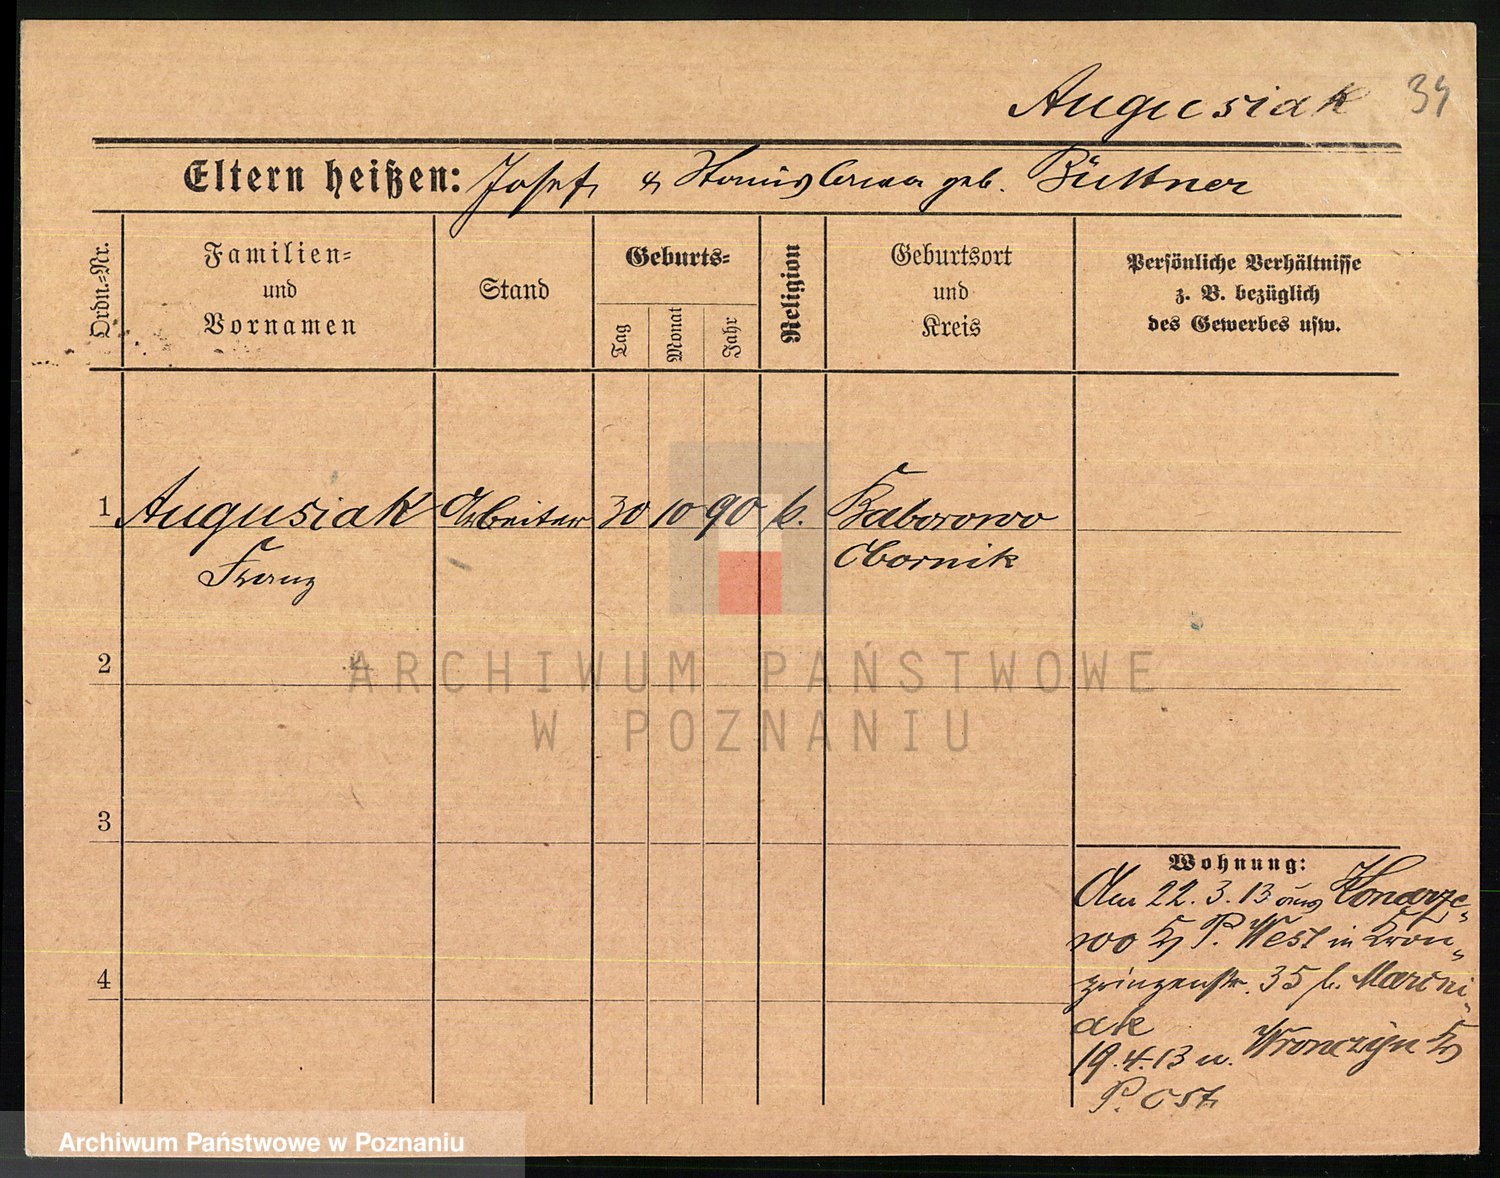 Augusiak 34
Eltern heißen: Josef & Stanislawa geb. Büttner
Ordn.-Nr.
Familien-
und
Vornamen
Stand
Geburts-
Tag
Monat
Jahr
Religion
Geburtsort
und
Kreis
Persönliche Verhältnisse
z. B. bezüglich
des Gewerbes usw.
1 Augusiak Arbeiter 30 10 90 k. Baborowo
Franz Obornik
2
ARCHIWUM PAŃSTWOWE
W POZNANIU
3
Wohnung:
Am 22.3.13 aus Konarze-
wo Kr P. West in Kron-
4
prinzenstr. 35 b. Marcini-
ak
19.4.13 n. Wronczyn Kr
P. Ost
Archiwum Państwowe w Poznaniu